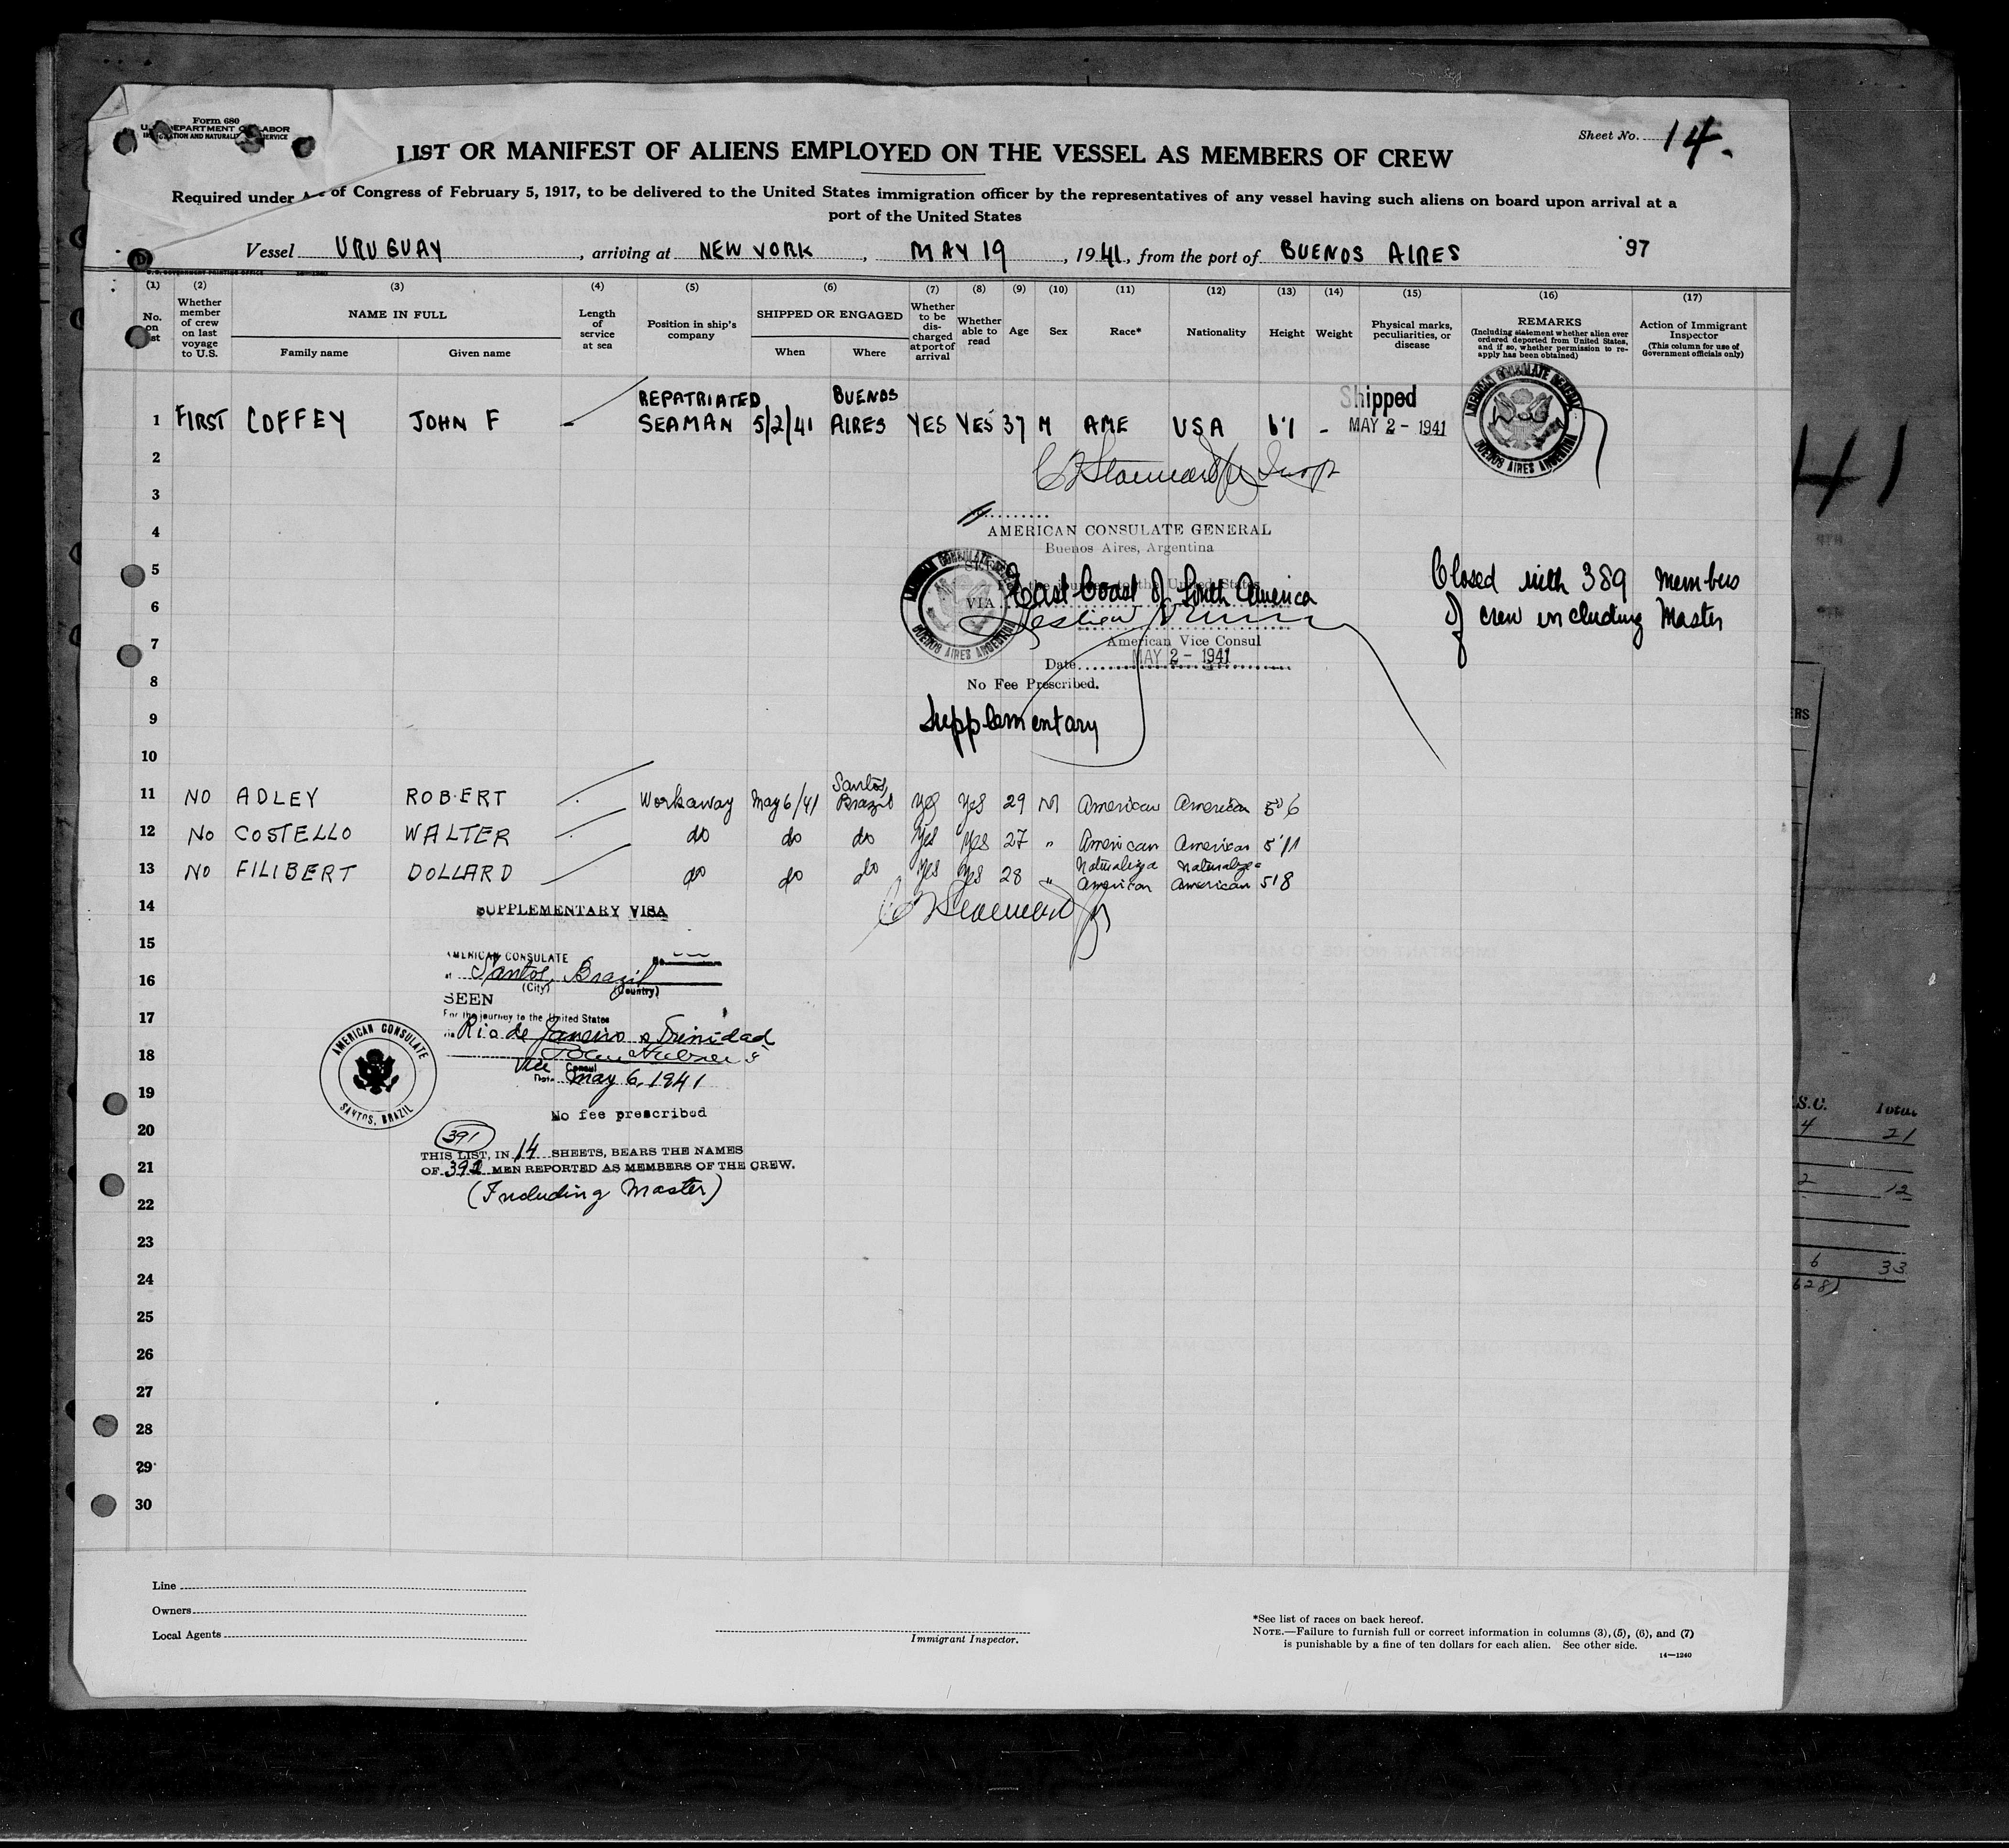 Form 680
Sheet No. 14.
LIST OR MANIFEST OF ALIENS EMPLOYED ON THE VESSEL AS MEMBERS OF CREW
Required under of Congress of February 5, 1917, to be delivered to the United States immigration officer by the representatives of any vessel having such aliens on board upon arrival at a
port of the United States
Vessel URUGUAY, arriving at NEW YORK, MAY 19, 1941, from the port of BUENOS AIRES 97
(1) (2) (3) (4) (5) (6) (7) (8) (9) (10) (11) (12) (13) (14) (15) (16) (17)
No. on
Whether member of crew on last voyage to U.S.
NAME IN FULL
Family name
Given name
Length of service at sea
Position in ship's company
SHIPPED OR ENGAGED
When
Where
Whether to be discharged at port of arrival
Whether able to read
Age
Sex
Race*
Nationality
Height
Weight
Physical marks, peculiarities, or disease
REMARKS
(Including statement whether alien ever ordered deported from United States, and if so, whether permission to reapply has been obtained)
Action of Immigrant Inspector
(This column for use of Government officials only)
1 FIRST COFFEY JOHN F – REPATRIATED SEAMAN 5/2/41 BUENOS AIRES YES YES 37 M AME USA 6'1 -
Shipped
MAY 2 - 1941
AMERICAN CONSULATE
BUENOS AIRES ARGENTINA
2
3
4
AMERICAN CONSULATE GENERAL
Buenos Aires, Argentina
5
East Coast of South America
VIA
Closed with 389 members
6
of crew including Master
7
American Vice Consul
Date MAY 2 - 1941
8
No Fee Prescribed.
9
Supplementary
10
11 NO ADLEY ROBERT Workaway May 6/41 Santos, Brazil Yes Yes 29 M American American 5'6
12 No COSTELLO WALTER do do do Yes Yes 27 " American American 5'11
13 NO FILIBERT DOLLARD do do do Yes Yes 28 " Naturalized American Naturalized American 5'8
14
SUPPLEMENTARY VISA
15
AMERICAN CONSULATE No.
16
at Santos, Brazil
(City) (Country)
SEEN
17
For the journey to the United States
via Rio de Janeiro & Trinidad
18
Vice Consul
Date May 6, 1941
AMERICAN CONSULATE
SANTOS, BRAZIL
19
No fee prescribed
20
391
THIS LIST, IN 14 SHEETS, BEARS THE NAMES
21
OF 392 MEN REPORTED AS MEMBERS OF THE CREW.
(Including Master)
22
23
24
25
26
27
28
29
30
Line
Owners
Local Agents
Immigrant Inspector.
*See list of races on back hereof.
NOTE.—Failure to furnish full or correct information in columns (3), (5), (6), and (7)
is punishable by a fine of ten dollars for each alien. See other side.
14—1240
41
ERS
.S.C. Total
4 21
2 12
6 33
628)